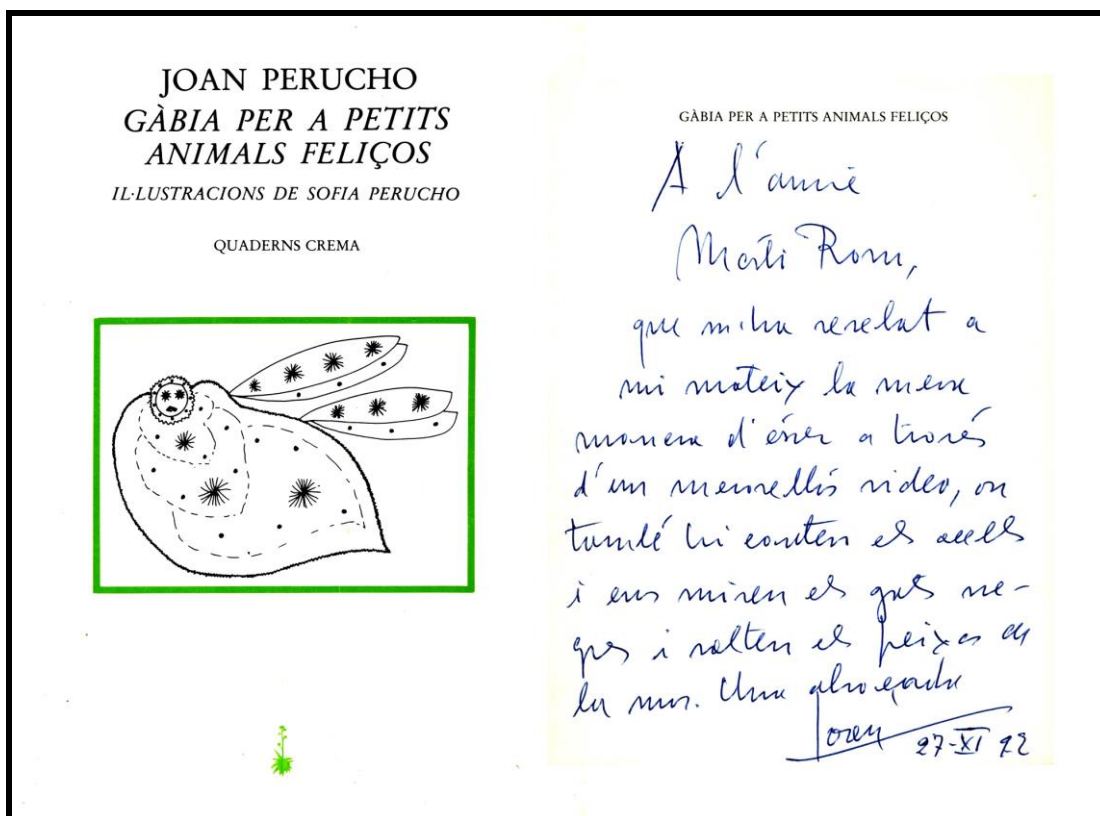 JOAN PERUCHO
GÀBIA PER A PETITS
ANIMALS FELIÇOS
IL·LUSTRACIONS DE SOFIA PERUCHO
QUADERNS CREMA
GÀBIA PER A PETITS ANIMALS FELIÇOS
A l'amic
Martí Rom,
que m'ha revelat a
mi mateix la meva
manera d'ésser a través
d'un meravellós video, on
també hi canten els ocells
i ens miren els gats ne-
gres i salten els peixos de
la mar. Una abraçada
Joan 27-XI 92